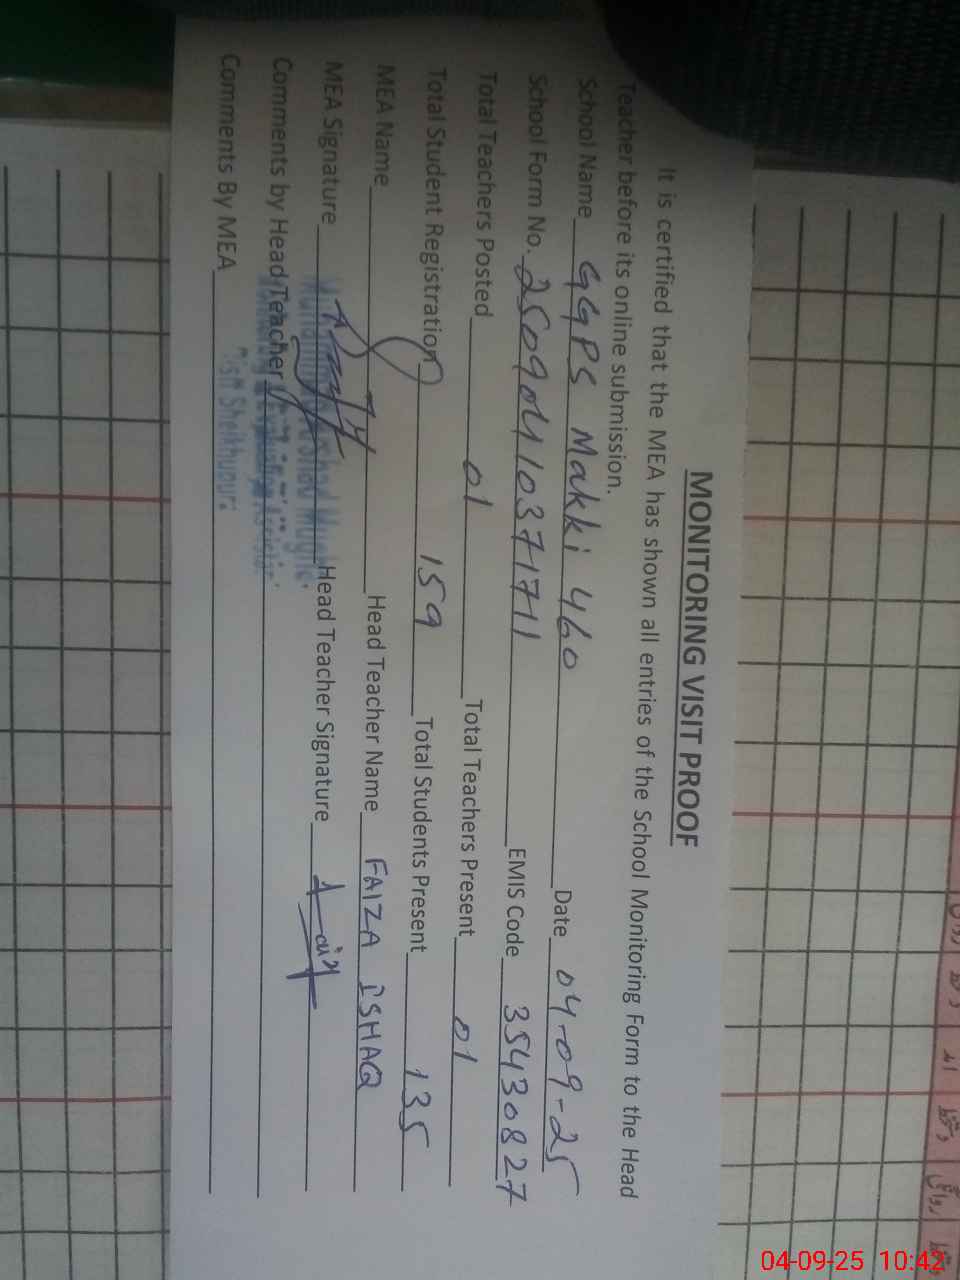 MONITORING VISIT PROOF
It is certified that the MEA has shown all entries of the School Monitoring Form to the Head
Teacher before its online submission.
School Name GGPS Makki 460 Date 04-09-25
School Form No. 25090410371711 EMIS Code 35430827
Total Teachers Posted 01 Total Teachers Present 01
Total Student Registration 159 Total Students Present 135
MEA Name Head Teacher Name FAIZA ISHAQ
MEA Signature Head Teacher Signature
Comments by Head Teacher
Comments By MEA
Distt Sheikhupura
04-09-25 10:42